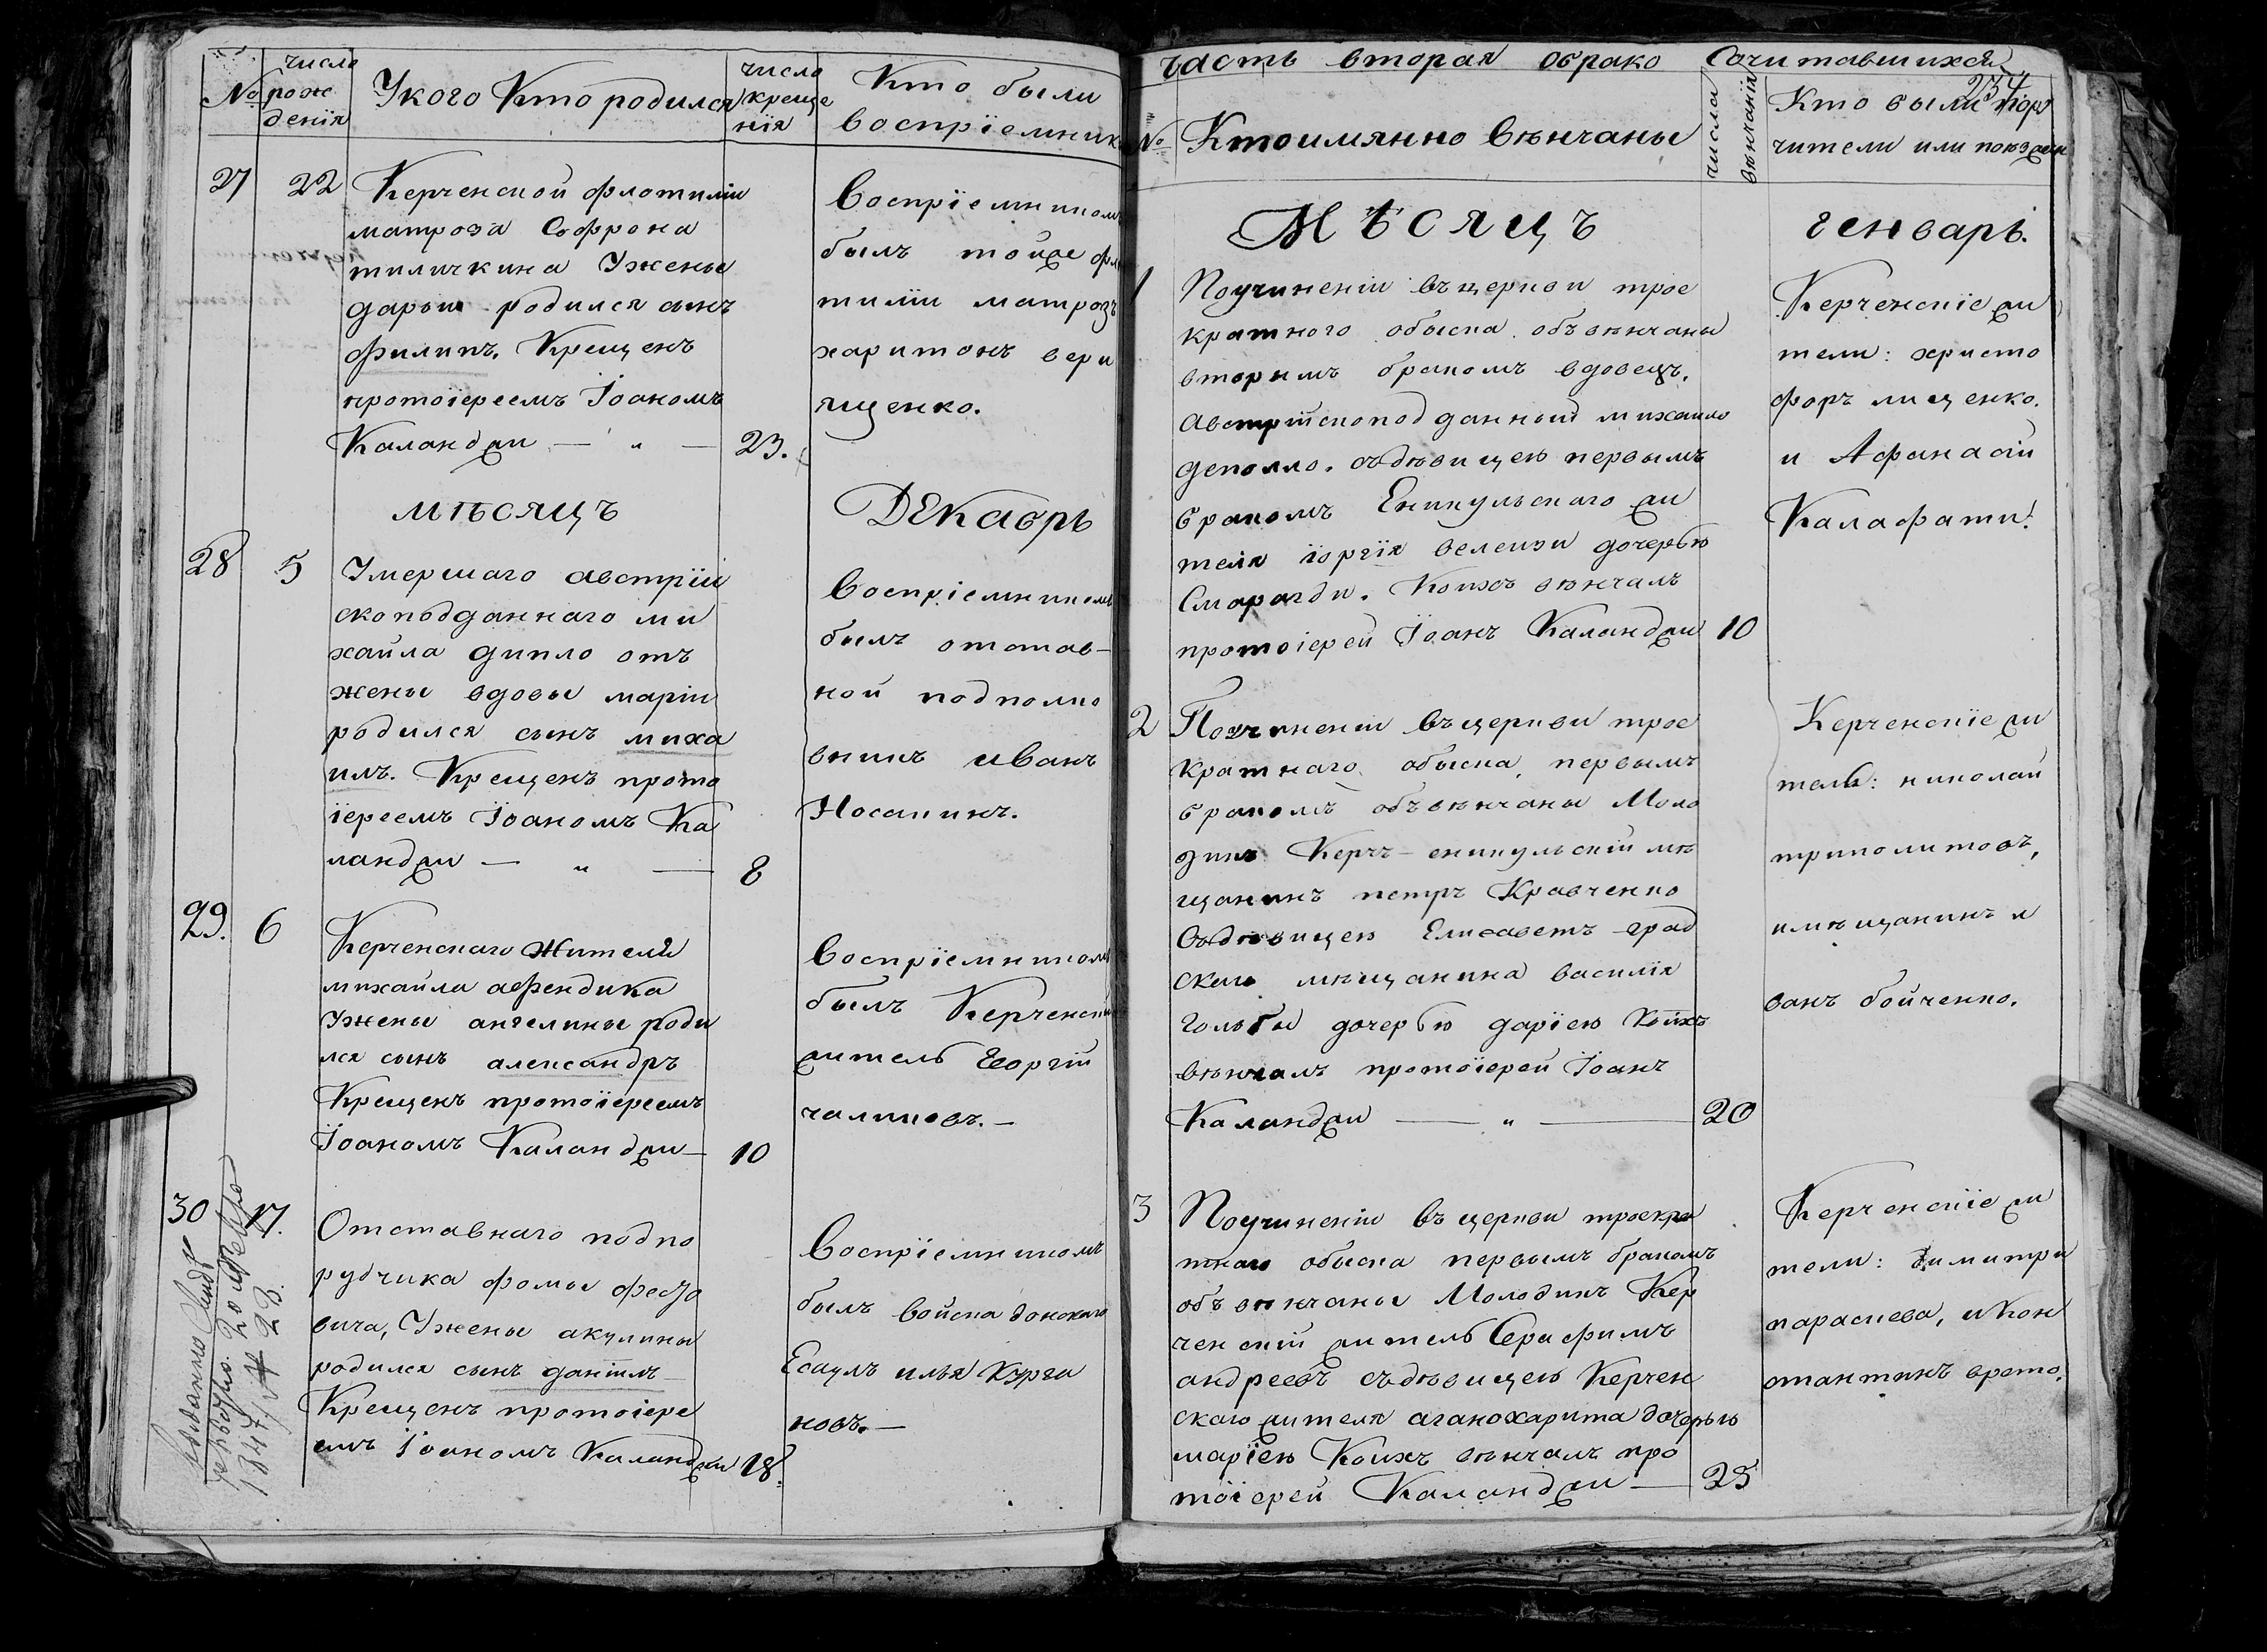 №
число
рож
денія
Укого Кто родился
число
креще
нія
Кто были
воспріемник
27
22
Керченской флотиліи
матроза Софрона
тиличкина Ужены
дарьи родился сынъ
филипъ. Крещенъ
протоіереемъ Іоаномъ
Каланджи — „ —
23.
Воспріемником
былъ тойже фл
тиліи матрозъ
харитонъ вери
ященко.
мѣсяцъ
Декабрь
28
5
Умершаго австрій
скоподданнаго ми
хайла диполо отъ
жены вдовы маріи
родился сынъ миха
илъ. Крещенъ прото
іереемъ Іоаномъ Ка
ланджи — „ —
8
Воспріемникомъ
былъ отстав-
ной подполко
вникъ иванъ
Носакинъ.
29.
6
Керченскаго жителя
михайла афендика
Ужены ангелины роди
лся сынъ александръ
Крещенъ протоіереемъ
Іоаномъ Каланджи —
10
Воспріемникомъ
былъ Керченскій
житель Георгій
чаликовъ. —
30
17.
Отставнаго подпо
рутчика фомы
вича, Ужены акулины
родился сынъ даніилъ
Крещенъ протоіере
емъ Іоаномъ Каланджи
18.
Воспріемникомъ
былъ войска донскаго
Есаулъ илья Курга
новъ. —
часть вторая обрако Сочитавшихся
234
№
Ктоимянно вѣнчаны
числа
вѣнчанія
Кто были пору
чители или поезжан
Мѣсяцъ
генварь.
1
Поучиненіи въцеркви трое
кратного обыска. объвѣнчаны
вторымъ бракомъ вдовецъ.
Австрійскоподданный михаило
деполло. съдѣвицею первымъ
бракомъ Еникульскаго жи
теля іоргія велензи дочерью
Смарагди. Коихъ вѣнчалъ
протоіерей Іоанъ Каланджи
10
Керченскіе жи
тели: христо
форъ лиценко.
и Афанасій
Калафати.
2
Поучиненіи въцеркви трое
кратнаго обыска, первымъ
бракомъ объвѣнчаны Моло
дикъ Керчъ-еникульскій мѣ
щанинъ петръ Кравченко
съдѣвицею Елисаветъ-град
скаго мѣщанина василія
Гольбы дочерью даріею Коихъ
вѣнчалъ протоіерей Іоанъ
Каланджи — „ —
20
Керченскіе жи
тель: николай
триполитовъ,
имѣщанинъ и
ванъ бойченко.
3
Поучиненіи въ церкви троекра
тнаго обыска первымъ бракомъ
объвѣнчаны Молодикъ Кер
ченскій житель Серафимъ
андреевъ съдѣвицею Керчен
скаго жителя аганохарита дочерью
маріею Коихъ вѣнчалъ про
тоіерей Каланджи —
25
Керченскіе жи
тели: димитри
параскева, икон
стантинъ врето.